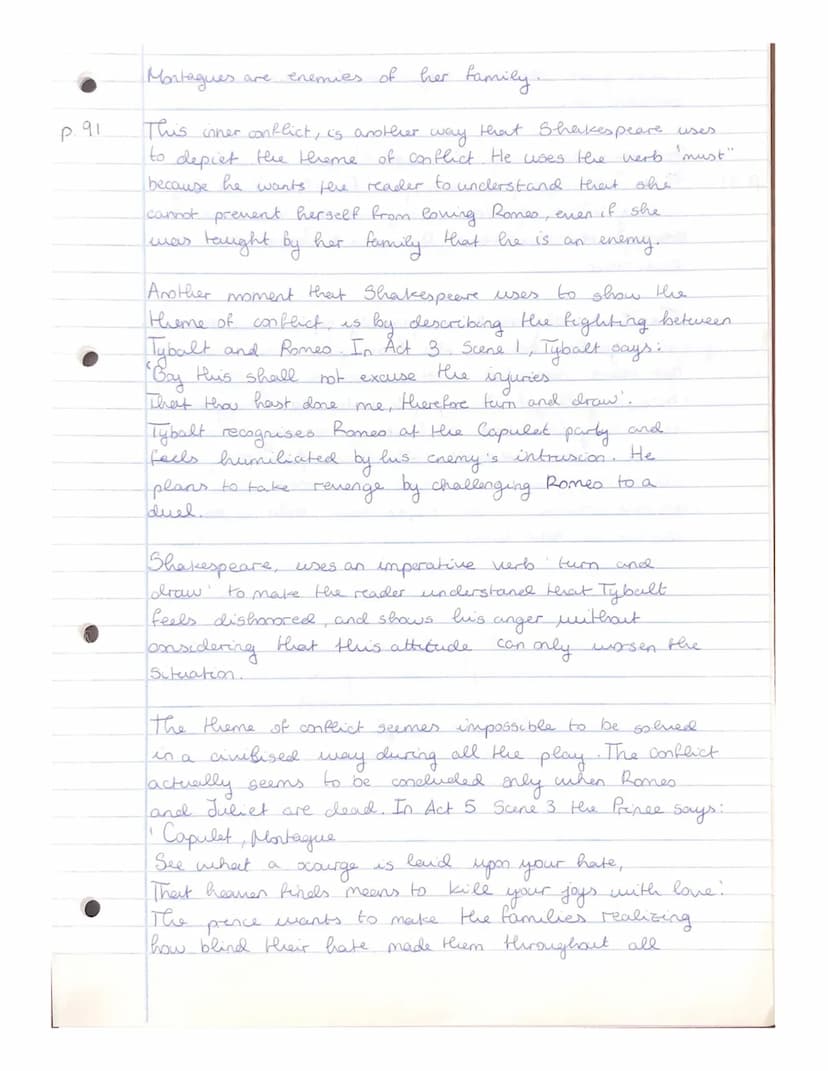 Montagues are enemies of her family.
p. 91
This inner conflict, is another way that Shakespeare uses
to depict the theme of conflict. He uses the verb "must"
because he wants the reader to understand that she
cannot prevent herself from loving Romeo, even if she
was taught by her family that he is an enemy.
Another moment that Shakespeare uses to show the
theme of conflict, is by describing the fighting between
Tybalt and Romeo. In Act 3 Scene 1, Tybalt says:
'Boy this shall not excuse the injuries
That thou hast done me, therefore turn and draw'.
Tybalt recognises Romeo at the Capulet party and
feels humiliated by his enemy's intrusion. He
plans to take revenge by challenging Romeo to a
duel.
Shakespeare, uses an imperative verb 'turn and
draw' to make the reader understand that Tybalt
feels dishonored, and shows his anger without
considering that this attitude can only worsen the
situation.
The theme of conflict seemes impossible to be solved
in a civilised way during all the play. The conflict
actually seems to be concluded only when Romeo
and Juliet are dead. In Act 5 Scene 3 the Prince says:
'Capulet, Montague
See what a scourge is laid upon your hate,
That heaven finds means to kill your joys with love.'
The prence wants to make the families realizing
how blind their hate made them throughout all